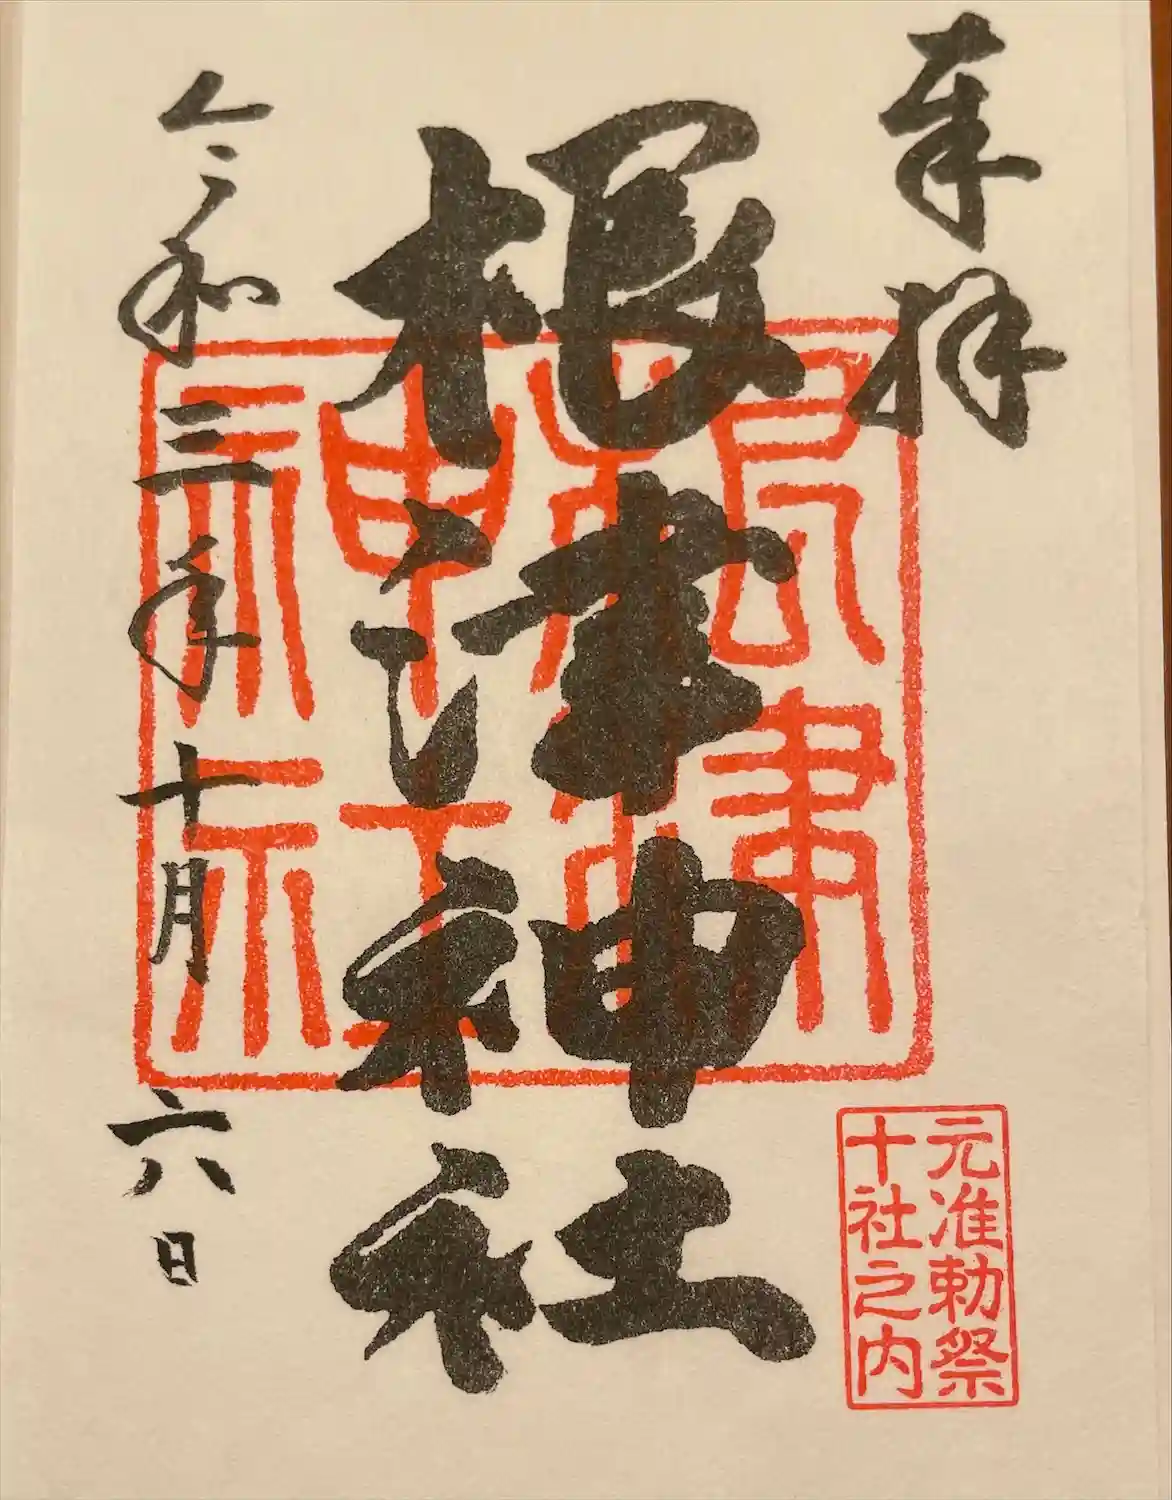 奉拝
根津神社
令和三年十月六日
根津
神社
元准勅祭
十社之内